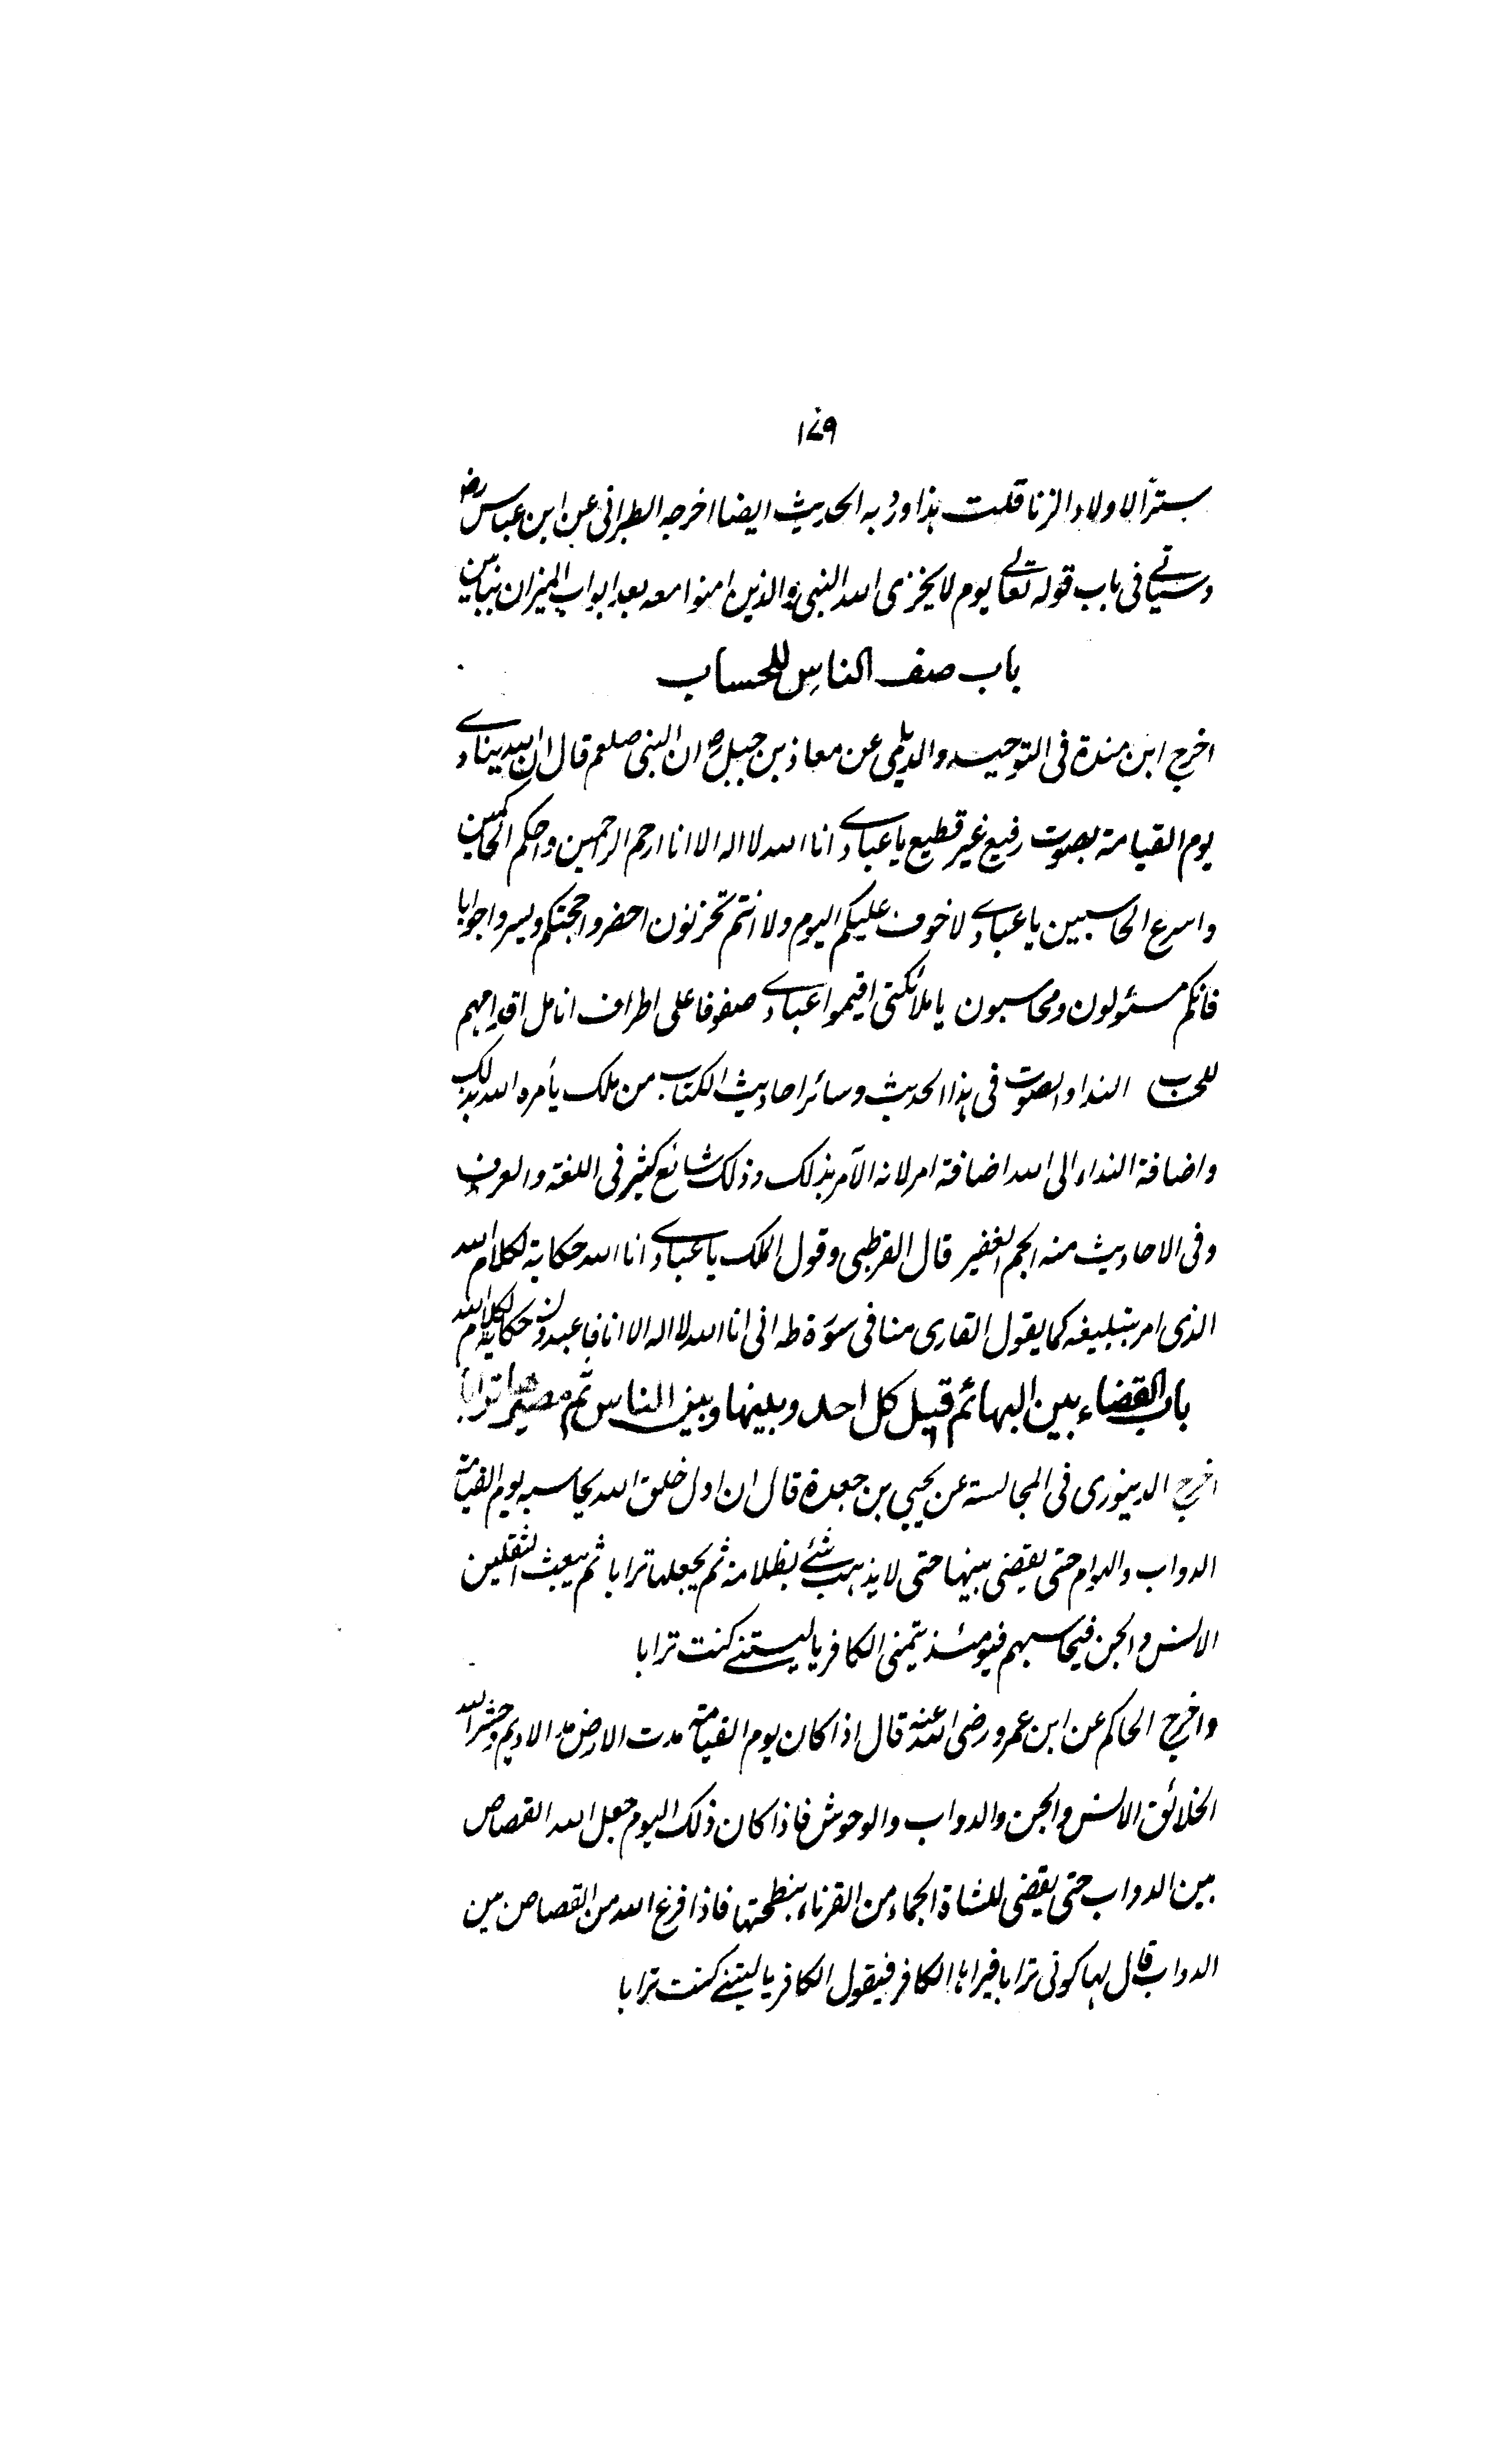 ۱۷۹
ستراً لاولاد الزنا قلت هذا ورد به الحديث ايضا اخرجه الطبرانى عن ابن عباس رض
وسياتے فى باب قوله تعالے يوم لا يخزى الله النبى والذين امنوا معه بعد ابواب الميزان
باب صف الناس للحساب
اخرج ابن مندة فى التوحيد والديلمى عن معاذ بن جبل رض ان النبى صلعم قال ان الله ينادے
يوم القيامة بصوت رفيع غير قطيع يا عبادے انا الله لا اله الا انا ارحم الرحمين واحكم الحاكمين
واسرع الحاسبين يا عبادے لا خوف عليكم اليوم ولا انتم تحزنون احضروا حجتكم ويسروا جوابا
فانكم مسئولون ومحاسبون يا ملائكتى اقيموا عبادے صفوفا على اطراف انامل اقدامهم
للحساب النداء والصوت فى هذا الحديث وسائر احاديث الكتاب من ملك يأمره الله بذلك
واضافة النداء الى الله اضافة امر لانه الآمر بذلك وذلك شائع كثير فى اللغة والعرف
وفى الاحاديث منه الجم الغفير قال القرطبى وقول الملك يا عبادے انا الله حكاية لكلام الله
الذى امر بتبليغه كما يقول القارى منا فى سورة طه انى انا الله لا اله الا انا فاعبدون حكاية لكلام الله
باب القضاء بين البهائم قبل كل احد وبينها وبين الناس ثم مصيرها ترابا
اخرج الدينورى فى المجالسة عن يحيى بن جعدة قال ان اول خلق الله يحاسب يوم القيامة
الدواب والهوام حتى يقضى بينها حتى لا يذهب شئے بظلامة ثم يجعلها ترابا ثم يبعث الثقلين
الانس والجن فيحاسبهم فيومئذ يتمنى الكافر يا ليتنے كنت ترابا
واخرج الحاكم عن ابن عمرو رضى الله عنه قال اذا كان يوم القيامة مدت الارض مد الاديم وحشر الله
الخلائق الانس والجن والدواب والوحوش فاذا كان ذلك اليوم جعل الله القصاص
بين الدواب حتى يقضى للشاة الجماء من القرناء بنطحتها فاذا فرغ الله من القصاص بين
الدواب قال لها كونى ترابا فيراها الكافر فيقول الكافر يا ليتنے كنت ترابا